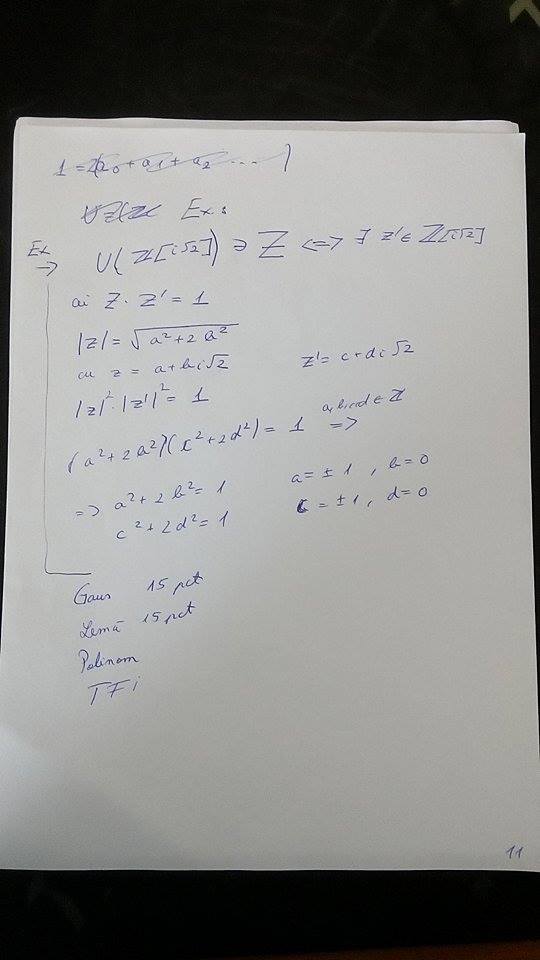 1 = 2(a₀ + a₁ + a₂ .... )
Ex:
Ex
=> U(ℤ[i√2]) ∋ Z <=> ∃ z' ∈ ℤ[i√2]
ai Z · Z' = 1
|z| = √(a² + 2a²)
cu z = a + bi√2 z' = c + di√2
|z|² · |z'|² = 1
(a² + 2a²)(c² + 2d²) = 1 a,b,c,d ∈ ℤ =>
=> a² + 2b² = 1 a = ±1, b = 0
c² + 2d² = 1 c = ±1, d = 0
Gaus 15 pct
Lemă 15 pct
Polinom
TFi
11